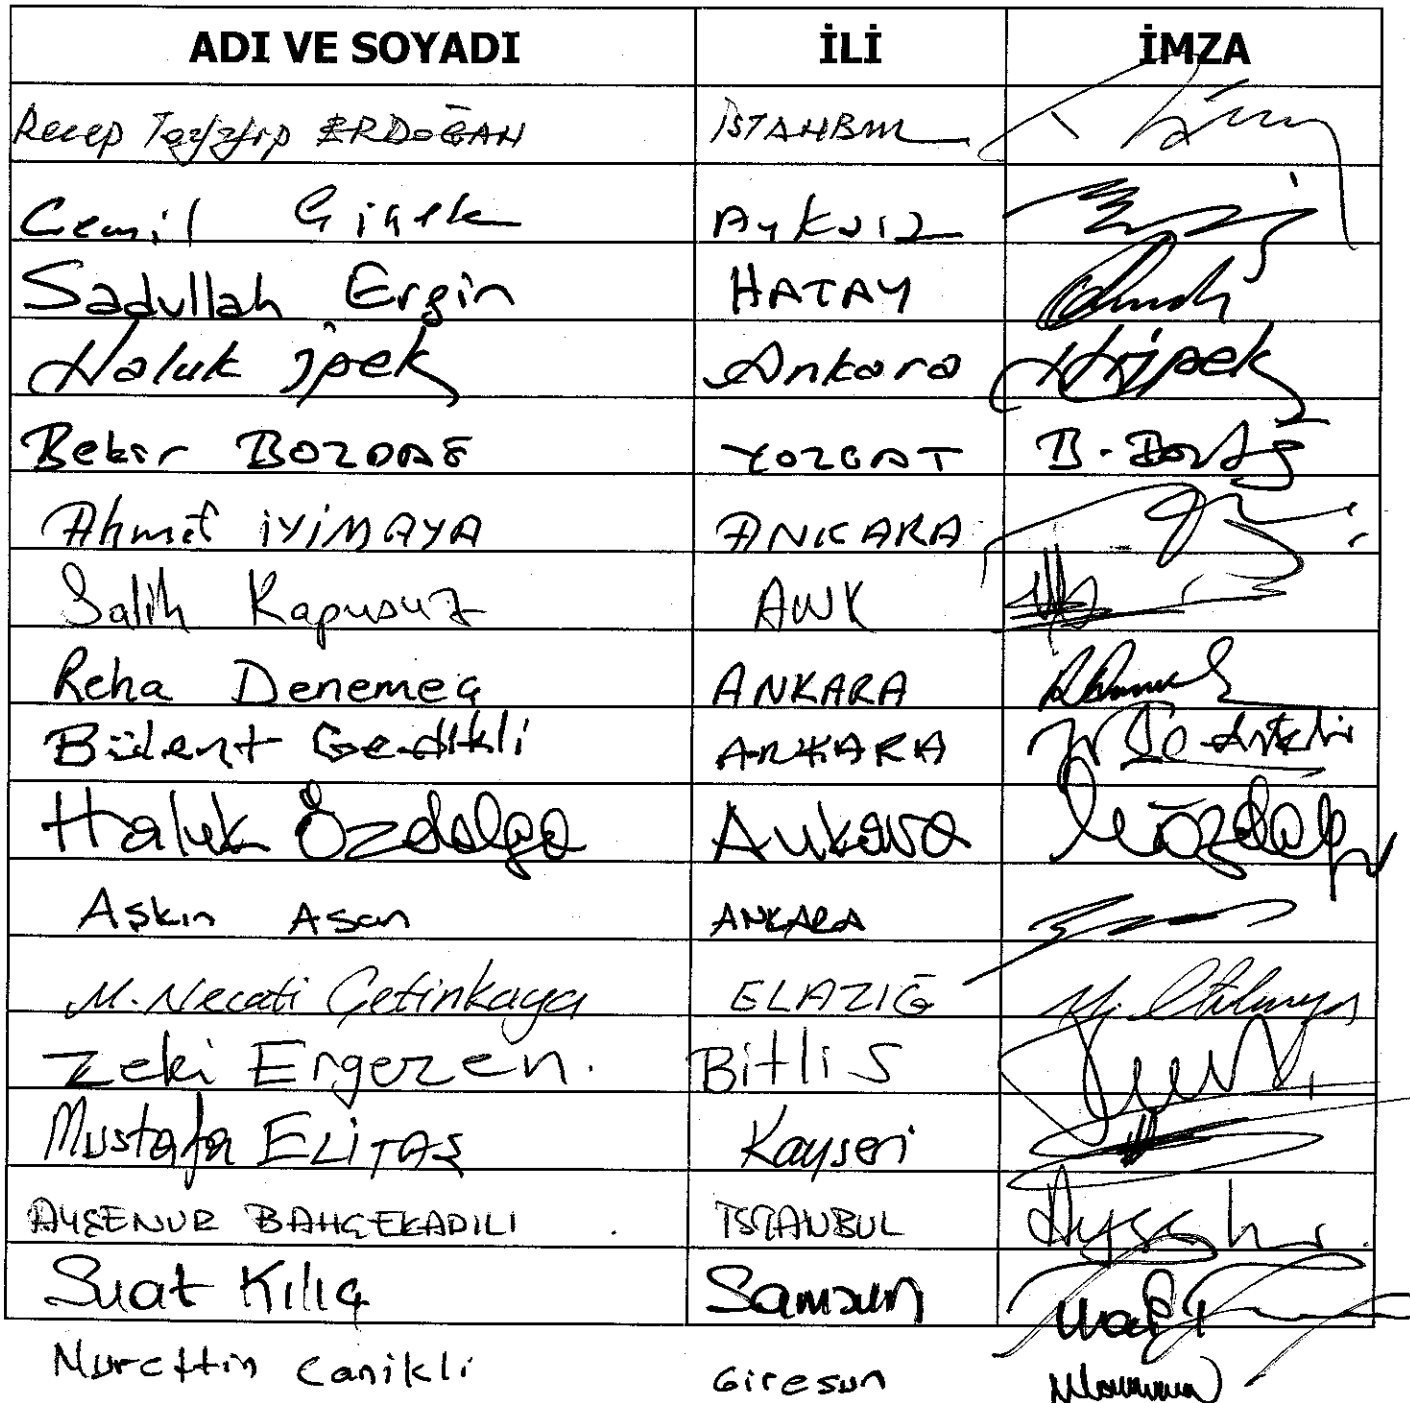 ADI VE SOYADI İLİ İMZA
Recep Tayyip ERDOĞAN İSTANBUL
Cemil Çiçek
Sadullah Ergin HATAY
Haluk İpek Ankara H.İpek
Bekir BOZDAĞ YOZGAT B. Bozdağ
Ahmet İYİMAYA ANKARA
Salih Kapusuz ANK
Reha Denemeç ANKARA
Bülent Gedikli ANKARA
Haluk Özdalga Ankara
Aşkın Asan ANKARA
M. Necati Çetinkaya ELAZIĞ
Zeki Ergezen. Bitlis
Mustafa ELİTAŞ Kayseri
AYŞENUR BAHÇEKAPILI İSTANBUL
Suat Kılıç Samsun
Nurettin Canikli Giresun